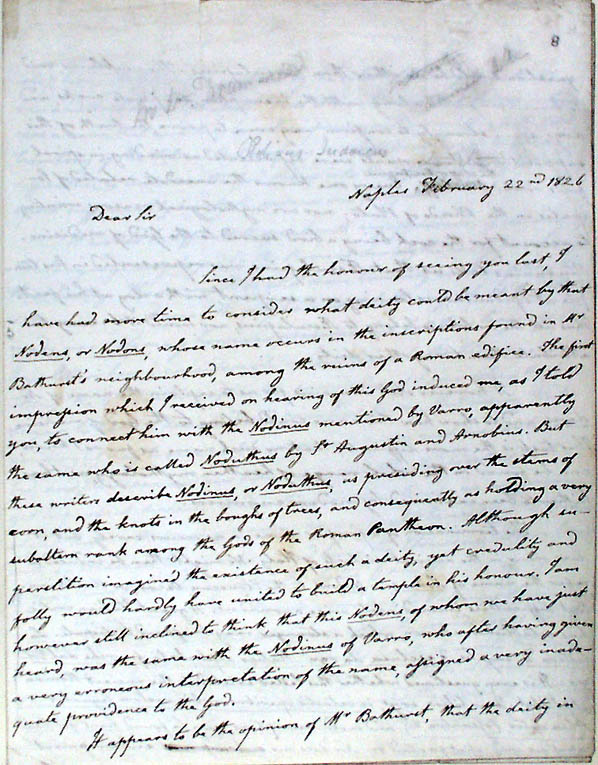 8
Naples February 22nd 1826
Dear Sir
Since I had the honour of seeing you last, I
have had more time to consider what deity could be meant by that
Nodens, or Nodons, whose name occurs in the inscriptions found in Mr
Bathurst's neighbourhood, among the ruins of a Roman edifice. The first
impression which I received on hearing of this God induced me, as I told
you, to connect him with the Nodinus mentioned by Varro, apparently
the same who is called Noduthus by St Augustin and Arnobius. But
these writers describe Nodinus, or Noduthus, as presiding over the stems of
corn, and the knots in the boughs of trees, and consequently as holding a very
subaltern rank among the Gods of the Roman Pantheon. Although su-
perstition imagined the existence of such a deity, yet credulity and
folly would hardly have united to build a temple in his honour. I am
however still inclined to think that this Nodens, of whom we have just
heard, was the same with the Nodinus of Varro, who after having given
a very erroneous interpretation of the name, assigned a very inade-
quate providence to the God.
It appears to be the opinion of Mr Bathurst, that the deity in